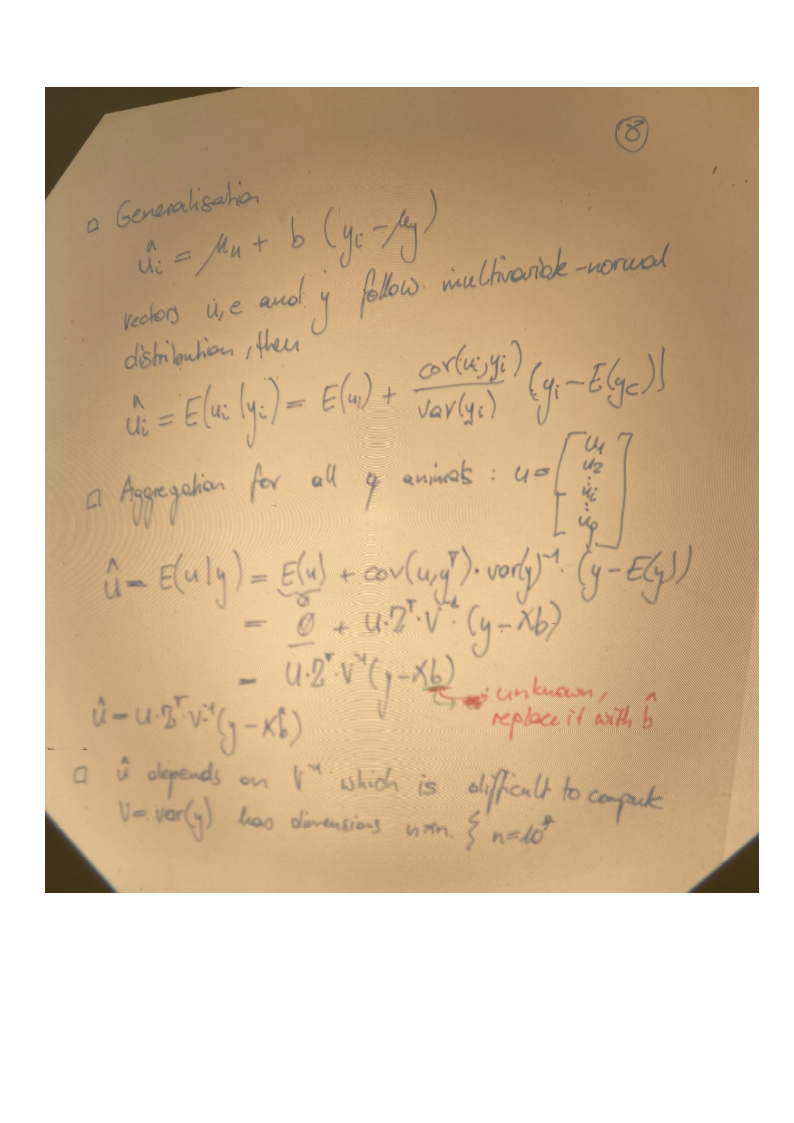 8
□ Generalisation
û_i = μ_u + b (y_i − μ_y)
vectors u, e and y follow multivariate-normal
distribution, then
û_i = E(u_i | y_i) = E(u_i) + cov(u_i, y_i) / var(y_i) (y_i − E(y_i))
□ Aggregation for all q animals : u = [u_1 u_2 ⋮ u_i ⋮ u_q]
û = E(u|y) = E(u) + cov(u, y^T) · var(y)^-1 · (y − E(y))
= 0 + U·Z^T·V^-1 · (y − Xb)
= U·Z^T·V^-1 (y − Xb)
unknown,
replace it with b̂
û = U·Z^T·V^-1 (y − Xb̂)
□ û depends on V^-1 which is difficult to compute
V = var(y) has dimensions n×n